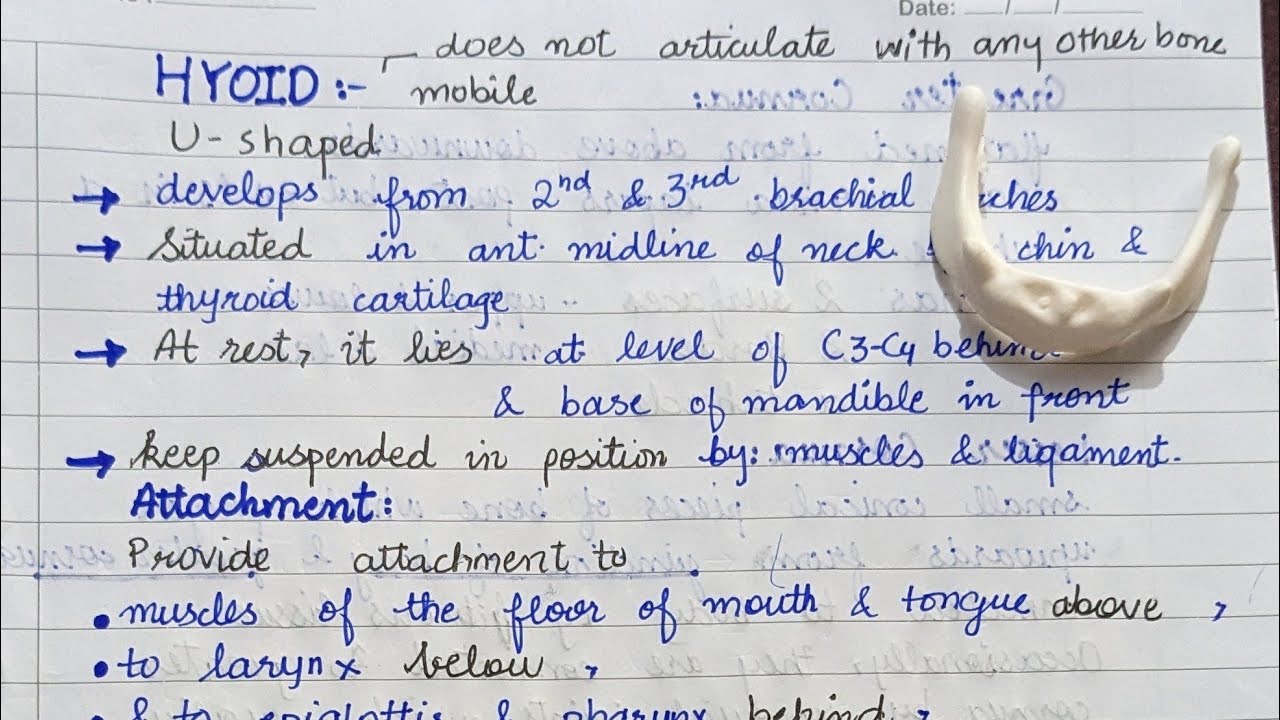 Date: __/__/__
does not articulate with any other bone
HYOID :- mobile
U-shaped
→ develops from 2nd & 3rd brachial ches
→ Situated in ant. midline of neck chin &
thyroid cartilage
→ At rest, it lies at level of C3-C4 behin
& base of mandible in front
→ keep suspended in position by: muscles & ligament.
Attachment:
Provide attachment to
• muscles of the floor of mouth & tongue above,
• to larynx below,
• & to epiglottis & pharynx behind,